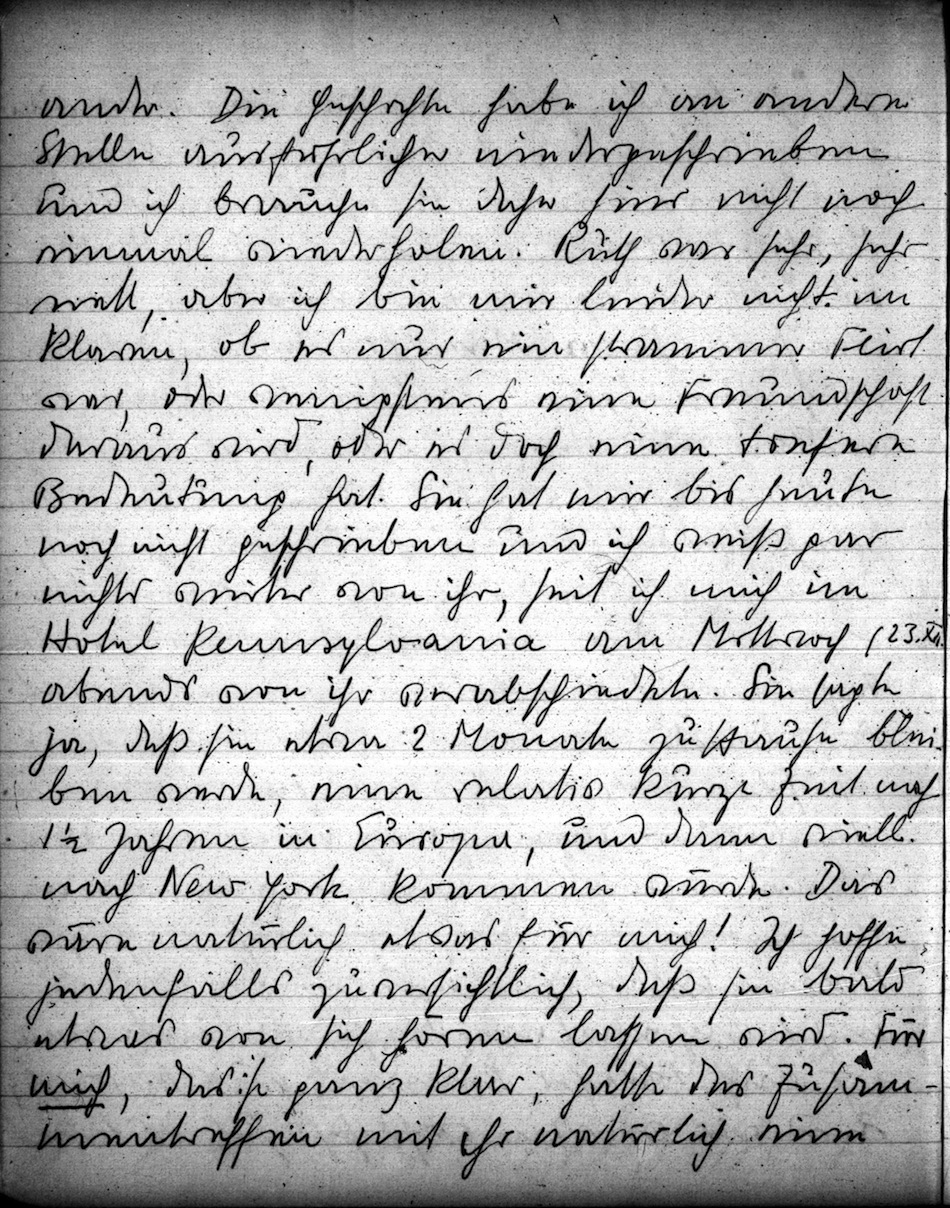 ander. Die Geschichte habe ich an andere
Stelle ausführlicher niedergeschrieben
und ich brauche sie daher hier nicht noch
einmal wiederholen. Ruth war sehr, sehr
nett, aber ich bin mir leider nicht im
Klaren, ob es nur ein strammer Flirt
war, oder wenigstens eine Freundschaft
daraus wird, oder es doch eine tiefere
Bedeutung hat. Sie hat mir bis heute
noch nicht geschrieben und ich weiß gar
nichts weiter von ihr, seit ich mich im
Hotel Pennsylvania am Mittwoch (23.XII.
abends von ihr verabschiedete. Sie sagte
ja, daß sie etwa 2 Monate zu Hause blei-
ben werde, eine relativ kurze Zeit nach
1½ Jahren in Europa, und dann viell.
nach New York kommen würde. Das
wäre natürlich etwas für mich! Ich hoffe
jedenfalls zuversichtlich, daß sie bald
etwas von sich hören lassen wird. Für
mich, das ist ganz klar, hatte das Zusam-
mentreffen mit ihr natürlich eine